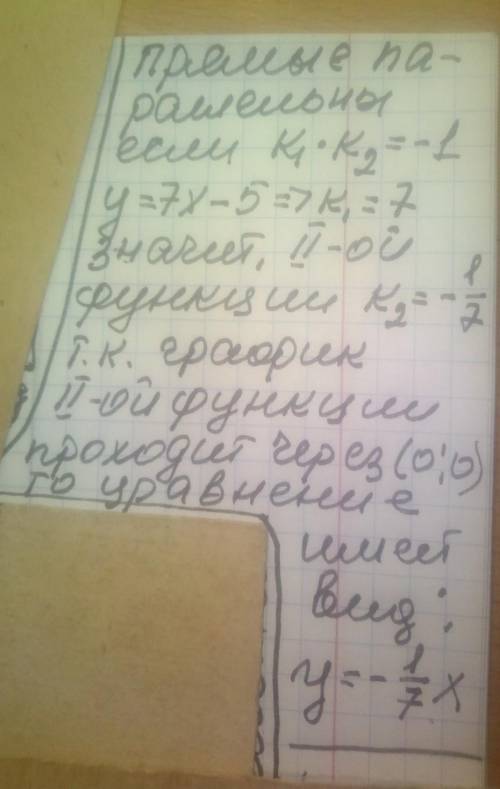 прямые па-
раллельны
если к₁·к₂=-1
у=7х-5=>к₁=7
значит, II-ой
функции к₂=-1/7
т.к. график
II-ой функции
проходит через (0;0)
то уравнение
имеет
вид:
у=-1/7х